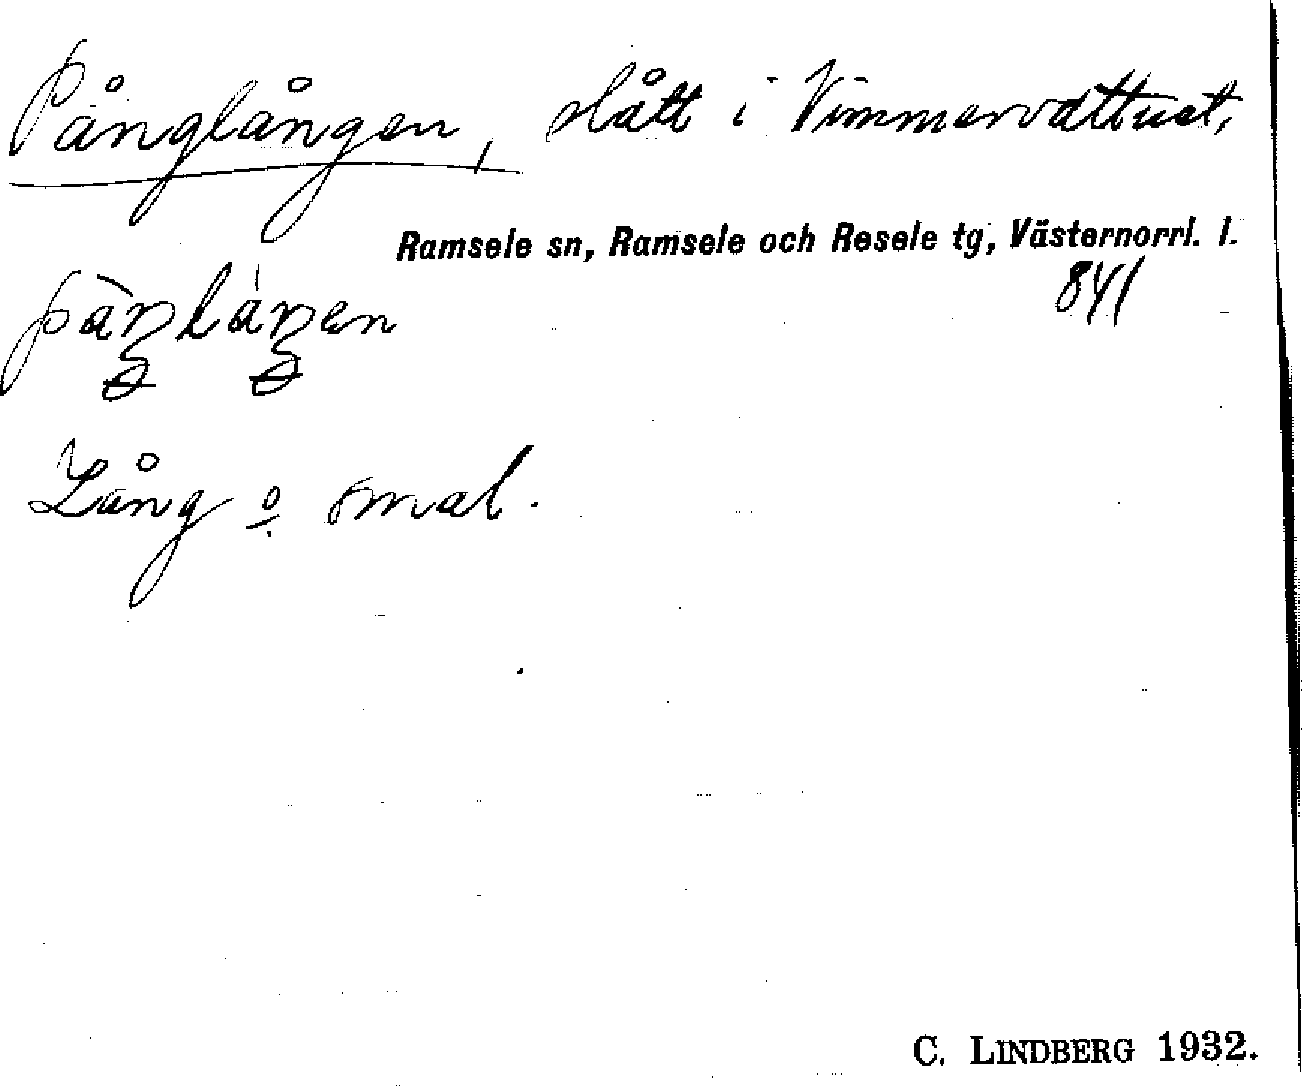 Pånglången, slått i Vimmervattnet,
Ramsele sn, Ramsele och Resele tg, Västernorrl. l.
841
Lång o smal.
C. LINDBERG 1932.